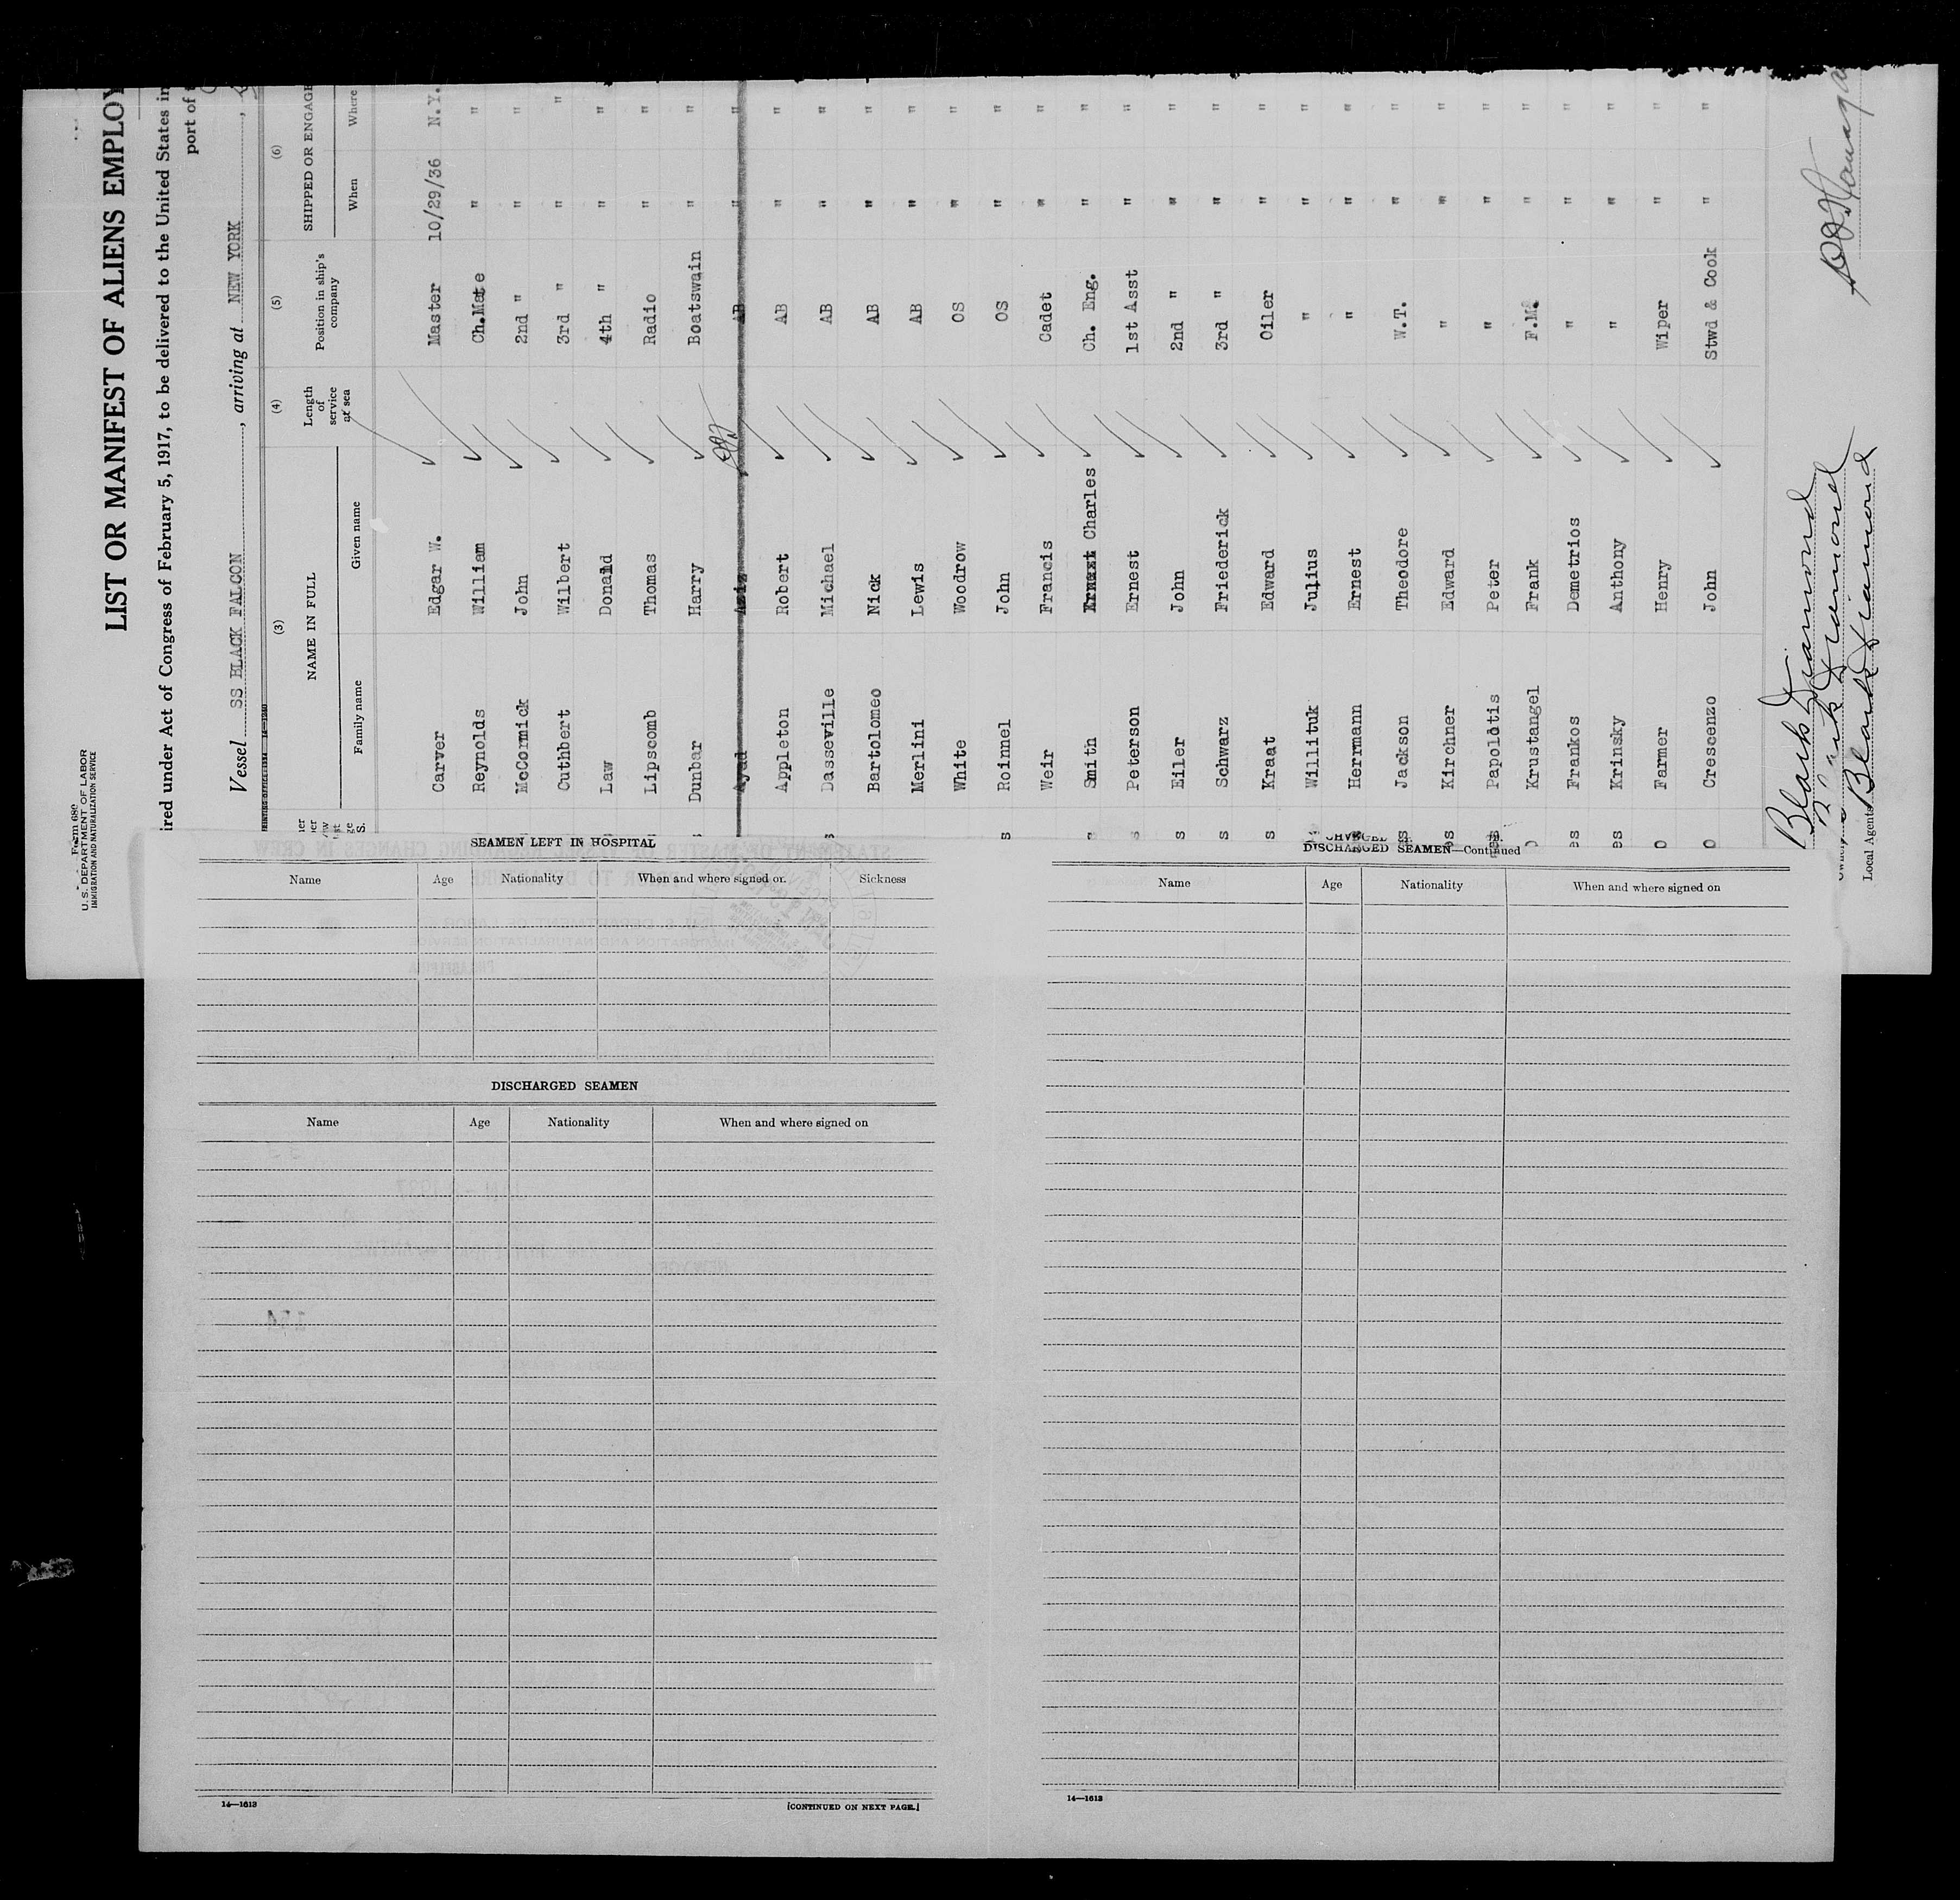 Form 680
U. S. DEPARTMENT OF LABOR
IMMIGRATION AND NATURALIZATION SERVICE
LIST OR MANIFEST OF ALIENS EMPLOY
ired under Act of Congress of February 5, 1917, to be delivered to the United States in
port of
Vessel SS BLACK FALCON, arriving at NEW YORK,
(3) (4) (5) (6)
NAME IN FULL Length of service at sea Position in ship's company SHIPPED OR ENGAGE
Family name Given name When Where
Carver Edgar W. Master 10/29/36 N.Y.
Reynolds William Ch.Mate " "
McCormick John 2nd " " "
Cuthbert Wilbert 3rd " " "
Law Donald 4th " " "
Lipscomb Thomas Radio " "
Dunbar Harry Boatswain " "
Ayad Aziz AB " "
Appleton Robert AB " "
Dasseville Michael AB " "
Bartolomeo Nick AB " "
Merlini Lewis AB " "
White Woodrow OS " "
s Roinnel John OS " "
Weir Francis Cadet " "
s Smith Ernest Charles Ch. Eng. " "
s Peterson Ernest 1st Asst " "
s Eiler John 2nd " " "
s Schwarz Friederick 3rd " " "
s Kraat Edward Oiler " "
Willituk Julius " " "
Herrmann Ernest " " "
es Jackson Theodore W.T. " "
es Kirchner Edward " " "
es Papolotis Peter " " "
o Krustangel Frank F.M. " "
es Frankos Demetrios " " "
es Krinsky Anthony " " "
o Farmer Henry Wiper " "
o Crescenzo John Stwd & Cook " "
Black Diamond
Black Diamond
Local Agents Black Diamond
SEAMEN LEFT IN HOSPITAL
Name Age Nationality When and where signed on Sickness
DISCHARGED SEAMEN
Name Age Nationality When and where signed on
14—1613
[CONTINUED ON NEXT PAGE.]
DISCHARGED SEAMEN—Continued
Name Age Nationality When and where signed on
14—1613